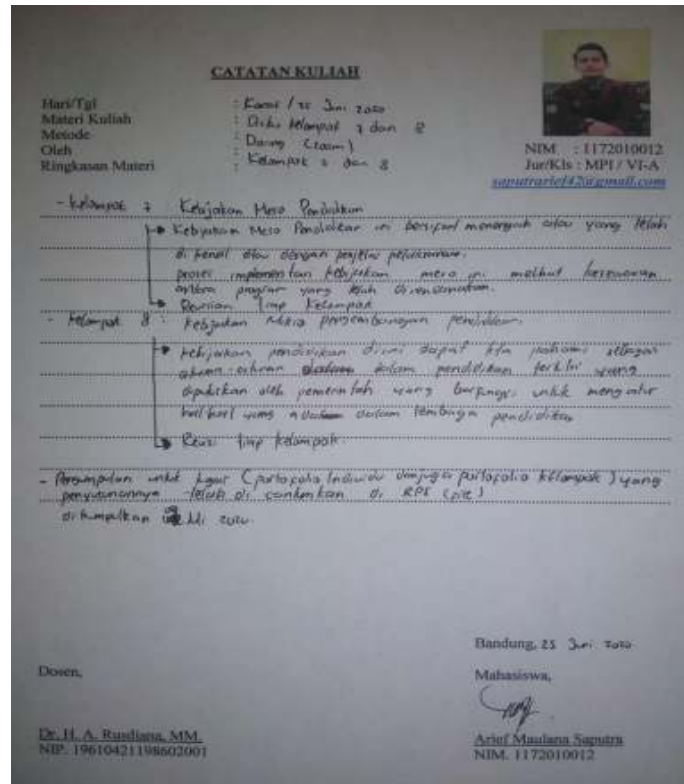 CATATAN KULIAH
Hari/Tgl : Kamis / 25 Juni 2020
Materi Kuliah : Diskusi kelompok 7 dan 8
Metode : Daring (zoom)
Oleh : Kelompok 7 dan 8
Ringkasan Materi :
NIM : 1172010012
Jur/Kls : MPI / VI-A
saputrarief42@gmail.com
- Kelompok 7 : Kebijakan Meso Pendidikan
Kebijakan Meso Pendidikan ini bersifat menengah atau yang telah
di kenal atau dengan penjelas pelaksanaan.
proses implementasi kebijakan meso ini melihat kesesuaian
antara program yang telah direncanakan.
Revisian tiap Kelompok
- Kelompok 8 : Kebijakan Mikro pengembangan pendidikan.
Kebijakan pendidikan disini dapat kita pahami sebagai
aturan-aturan dalam pendidikan yang
oleh pemerintah yang berfungsi untuk mengatur
hal-hal yang dalam lembaga pendidikan
Revisi tiap kelompok.
- Pengumpulan untuk tugas (portofolio Individu dan juga portofolio kelompok) yang
penyusunannya telah di cantumkan di RPS
di kumpulkan Juli 2020.
Bandung, 25 Juni 2020
Dosen,
Mahasiswa,
Dr. H. A. Rusdiana, MM.
NIP. 19610421198602001
Arief Maulana Saputra
NIM. 1172010012